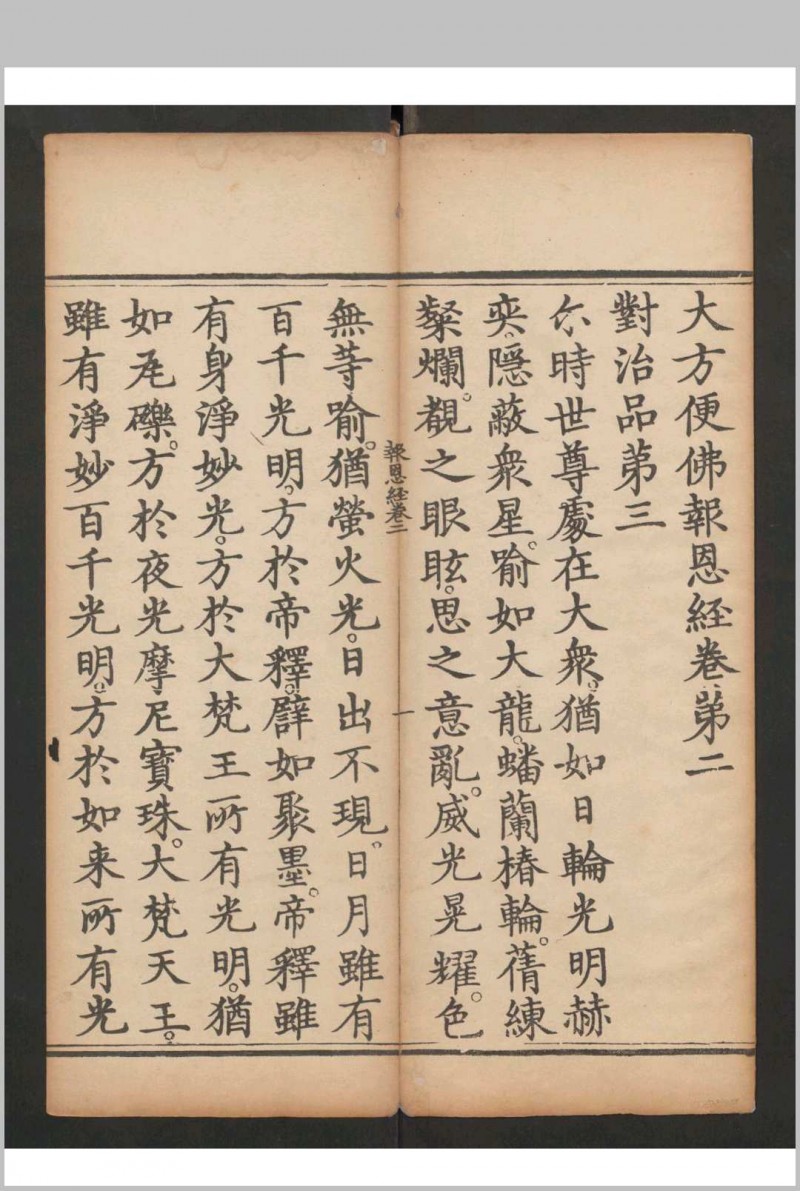 大方便佛報恩経卷苐二
對治品苐三
尒時世尊處在大衆。猶如日輪光明赫
奕。隱蔽衆星。喻如大龍。蟠蘭椿輪。蒨練
粲爛。覩之眼眩。思之意亂。威光晃耀。色
報恩経卷二
一
無等喻。猶螢火光。日出不現。日月雖有
百千光明。方於帝釋。譬如聚墨。帝釋雖
有身淨妙光。方於大梵王所有光明。猶
如瓦礫。方於夜光摩尼寶珠。大梵天王。
雖有淨妙百千光明。方於如来所有光